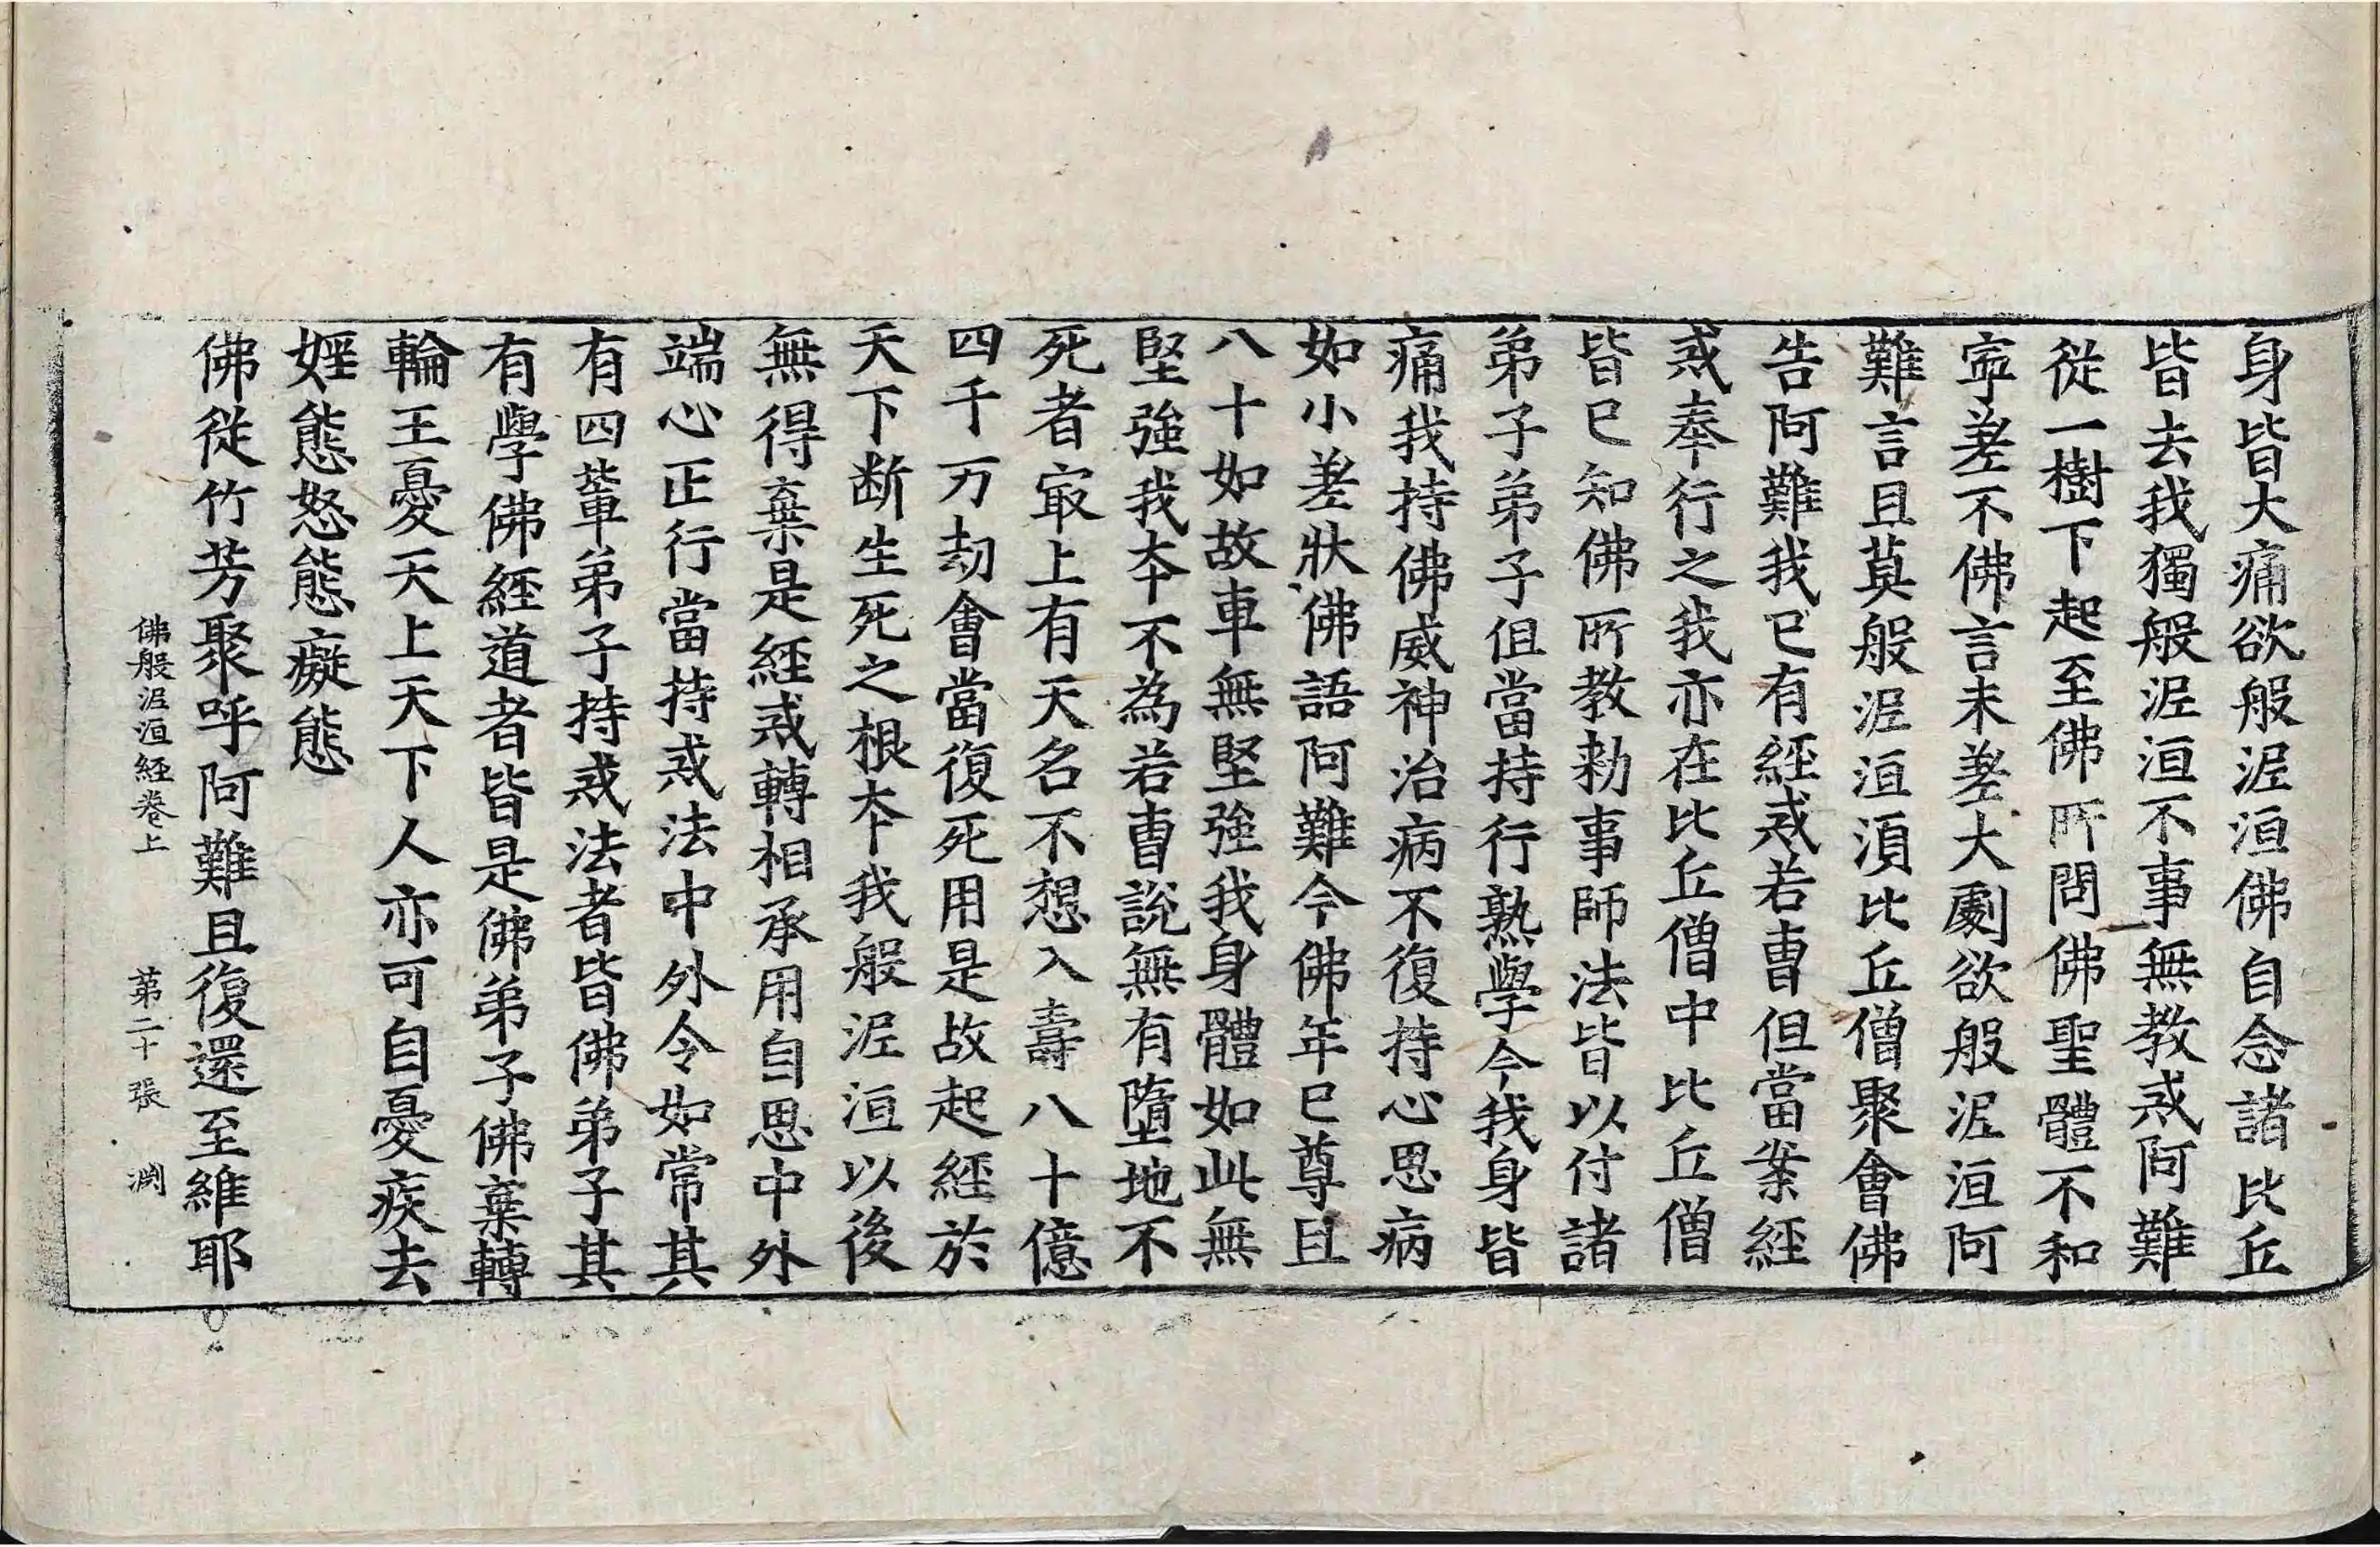 身皆大痛欲般泥洹佛自念諸比丘
皆去我獨般泥洹不事無教戒阿難
従一樹下起至佛所問佛聖體不和
寧差不佛言未差大劇欲般泥洹阿
難言且莫般泥洹湏比丘僧聚會佛
告阿難我已有經戒若曺但當案經
戒奉行之我亦在比丘僧中比丘僧
皆已知佛所教勑事師法皆以付諸
弟子弟子但當持行熟學今我身皆
痛我持佛威神治病不復持心思病
如小差狀佛語阿難今佛年已尊且
八十如故車無堅強我身體如此無
堅強我夲不為若曺說無有墮地不
死者㝡上有天名不想入壽八十億
四千万劫會當復死用是故起經於
天下断生死之根夲我般泥洹以後
無得棄是經戒轉相承用自思中外
端心正行當持戒法中外令如常其
有四輩弟子持戒法者皆佛弟子其
有學佛經道者皆是佛弟子佛棄轉
輪王憂天上天下人亦可自憂疾去
婬態怒態癡態
佛従竹芳聚呼阿難且復還至維耶
佛般泥洹經卷上 第二十張 澗